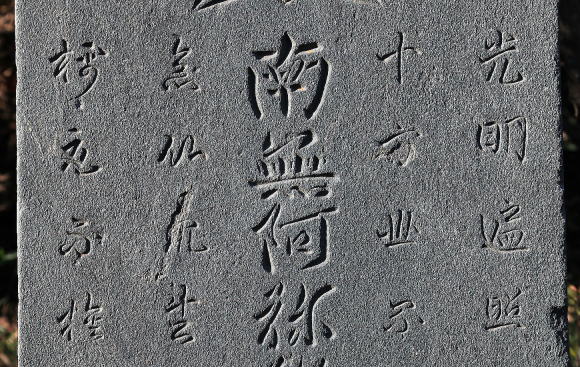 光明遍照
十方世界
南無阿弥
念仏衆生
摂取不捨